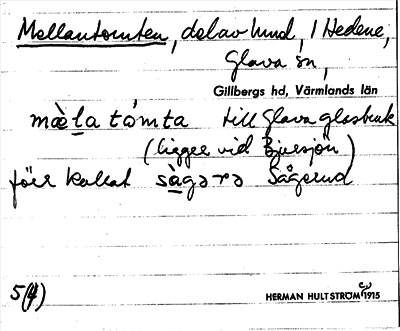 Mellantomten, del av hmd, i Hedene,
Glava sn,
Gillbergs hd, Värmlands län
mæ̀la tómta till Glava glasbruk
(ligger vid Bjursjön)
förr kallat sàgərə Sågerud
5(4)
HERMAN HULTSTRÖM 1915